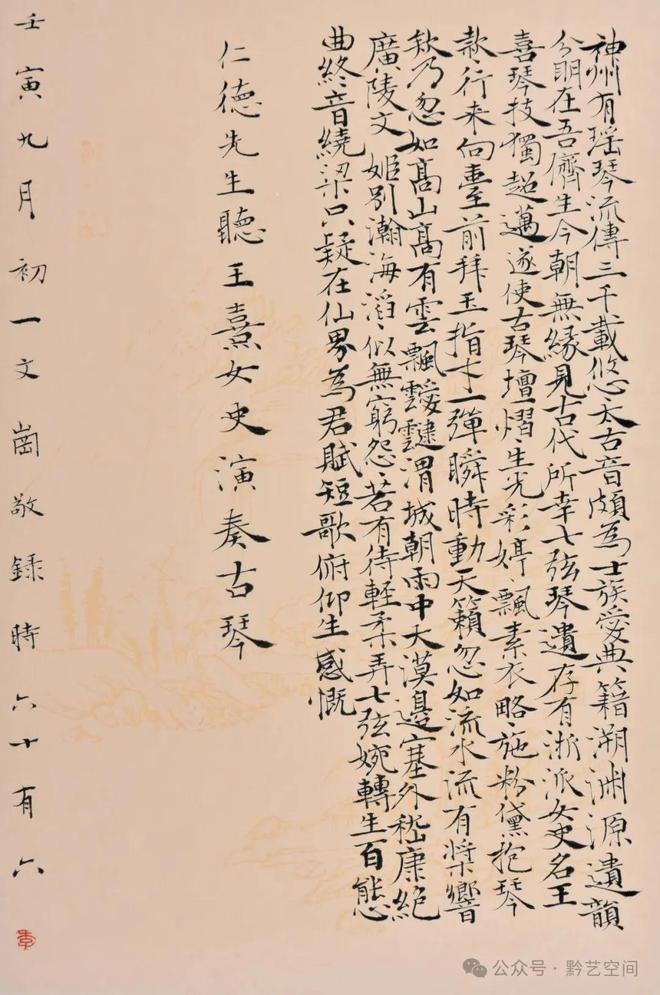 神州有瑶琴流傳三千載悠〻太古音頗為士族愛典籍溯渊源遺韻
分明在吾儕生今朝無緣見古代所幸七弦琴遺存有浙派女史名王
喜琴技獨超邁遂使古琴壇熠〻生光彩婷〻飄素衣略〻施粉黛抱琴
款〻行来向臺前拜玉指才一彈瞬時動天籟忽如流水流有槳響
欸乃忽如高山高有雲飄靉靆渭城朝雨中大漠邊塞外嵇康絕
廣陵文姬別瀚海滔〻似無窮怨〻若有待輕柔弄七弦婉轉生百態
曲終音繞梁只疑在仙界為君賦短歌俯仰生感慨
仁德先生聽王熹女史演奏古琴
壬寅九月初一文崗敬録時六十有六
公众号·黔艺空间